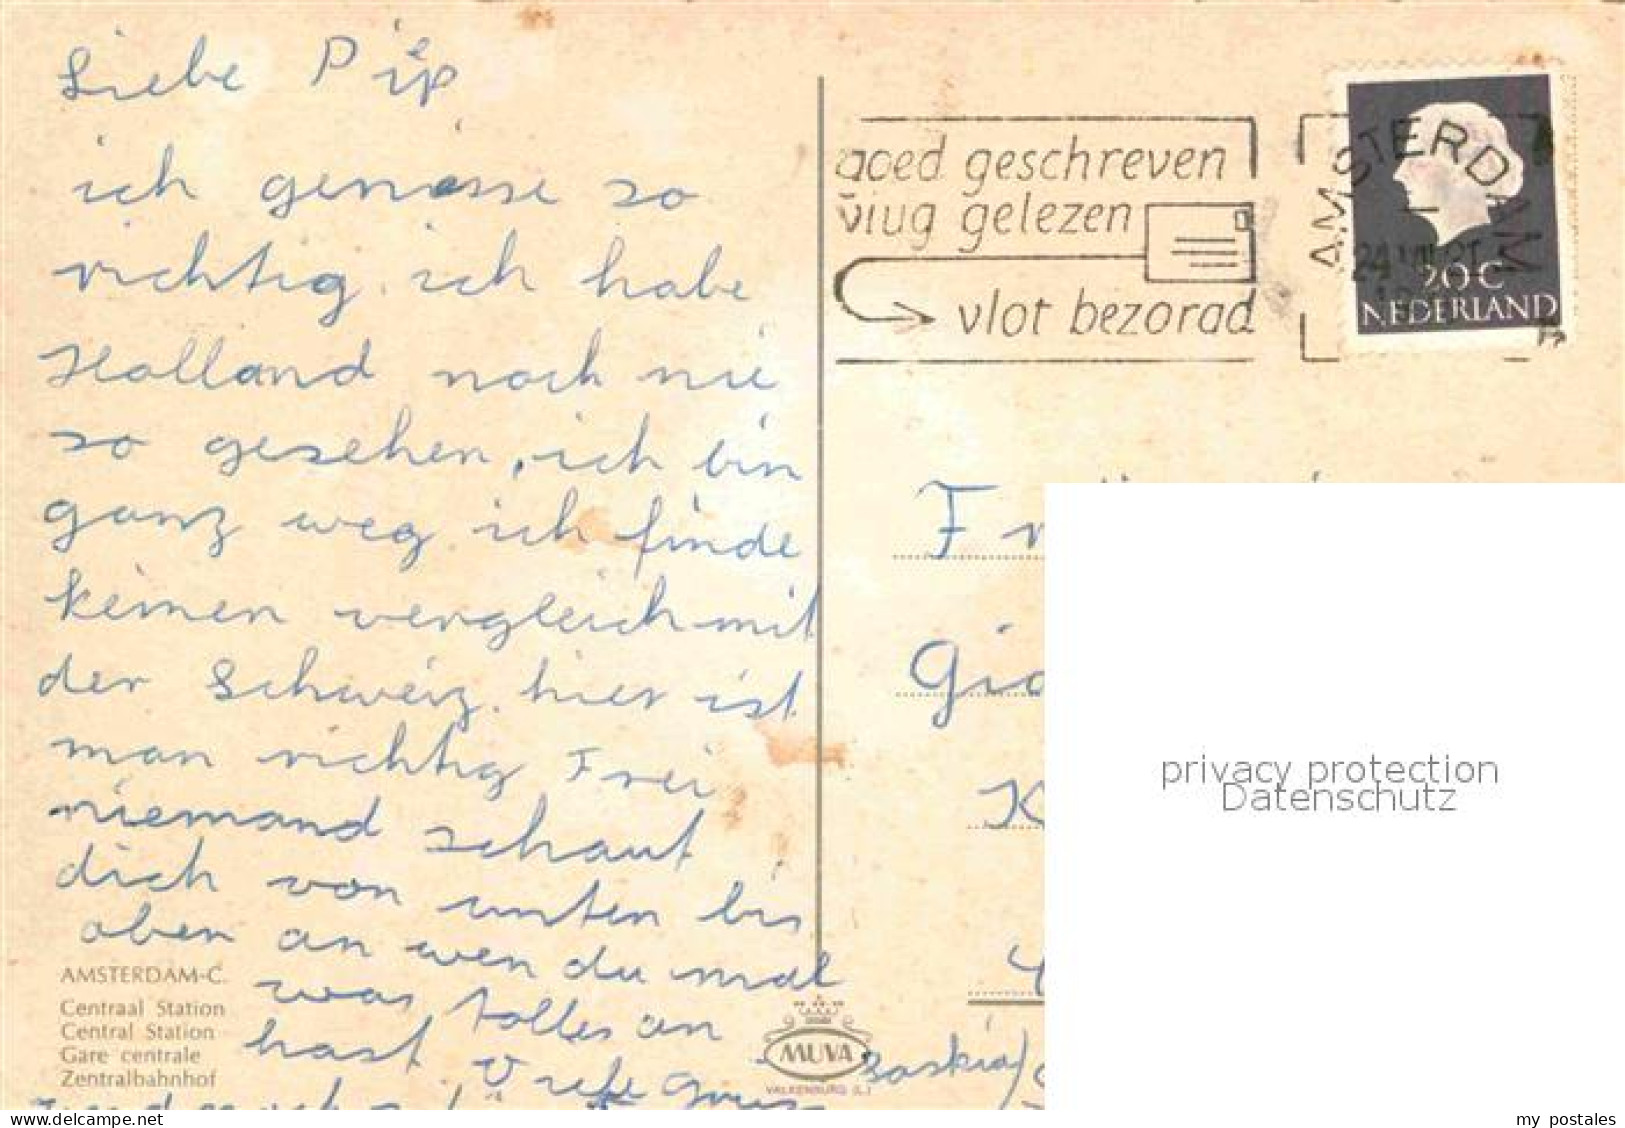 Liebe Pip
ich geniesse so
richtig. ich habe
Holland noch nie
so gesehen, ich bin
ganz weg ich finde
keinen vergleich mit
der Schweiz. hier ist
man richtig Frei
niemand schaut
dich von unten bis
oben an wen du mal
was tolles an
hast
AMSTERDAM-C.
Centraal Station
Central Station
Gare centrale
Zentralbahnhof
MUVA
VALKENBURG (L.)
Saskia
goed geschreven
vlug gelezen
vlot bezorgd
AMSTERDAM
20 C
NEDERLAND
privacy protection
Datenschutz
www.delcampe.net
my_postales